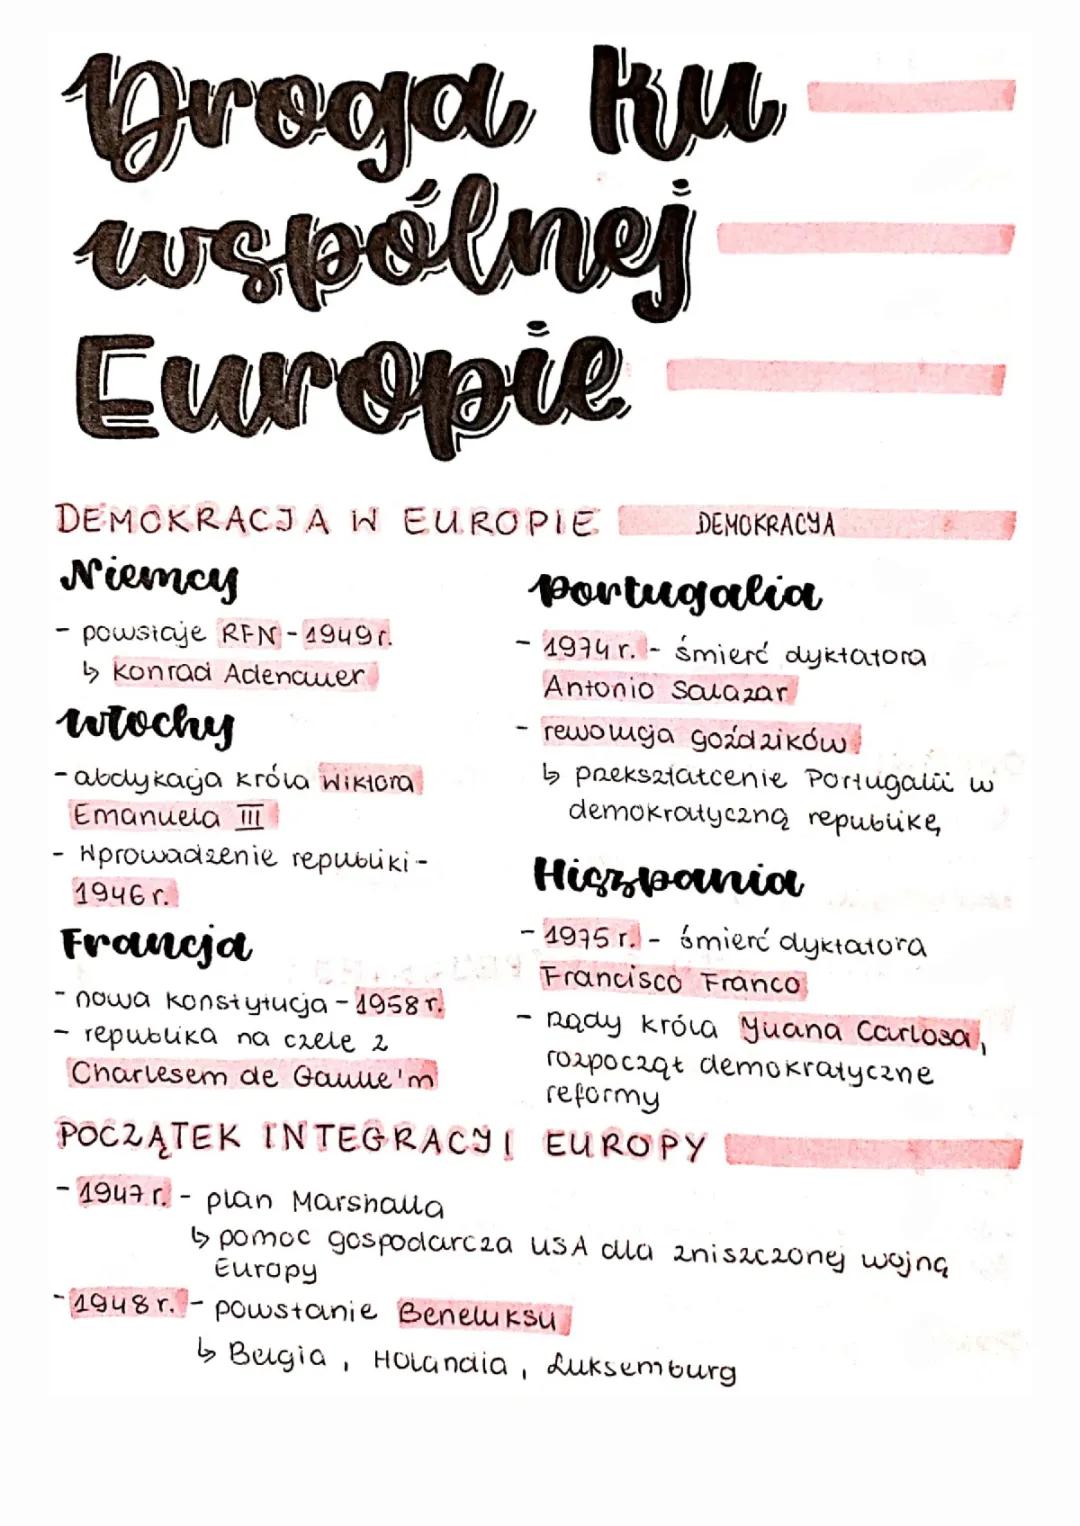 Droga ku
wspólnej
Europie
DEMOKRACJA W EUROPIE
DEMOKRACYA
Niemcy
- powstaje RFN - 1949 r.
↳ Konrad Adenauer
Włochy
- abdykacja króla Wiktora
Emanuela III
- Wprowadzenie republiki -
1946 r.
Francja
- nowa konstytucja - 1958 r.
- republika na czele z
Charlesem de Gaulle'm
Portugalia
- 1974 r. - śmierć dyktatora
Antonio Salazar
- rewolucja goździków
↳ przekształcenie Portugalii w
demokratyczną republikę
Hiszpania
- 1975 r. - śmierć dyktatora
Francisco Franco
- Rządy króla Juana Carlosa,
rozpoczął demokratyczne
reformy
POCZĄTEK INTEGRACYI EUROPY
- 1947 r. - plan Marshalla
↳ pomoc gospodarcza USA dla zniszczonej wojną
Europy
- 1948 r. - powstanie Beneluksu
↳ Belgia, Holandia, Luksemburg